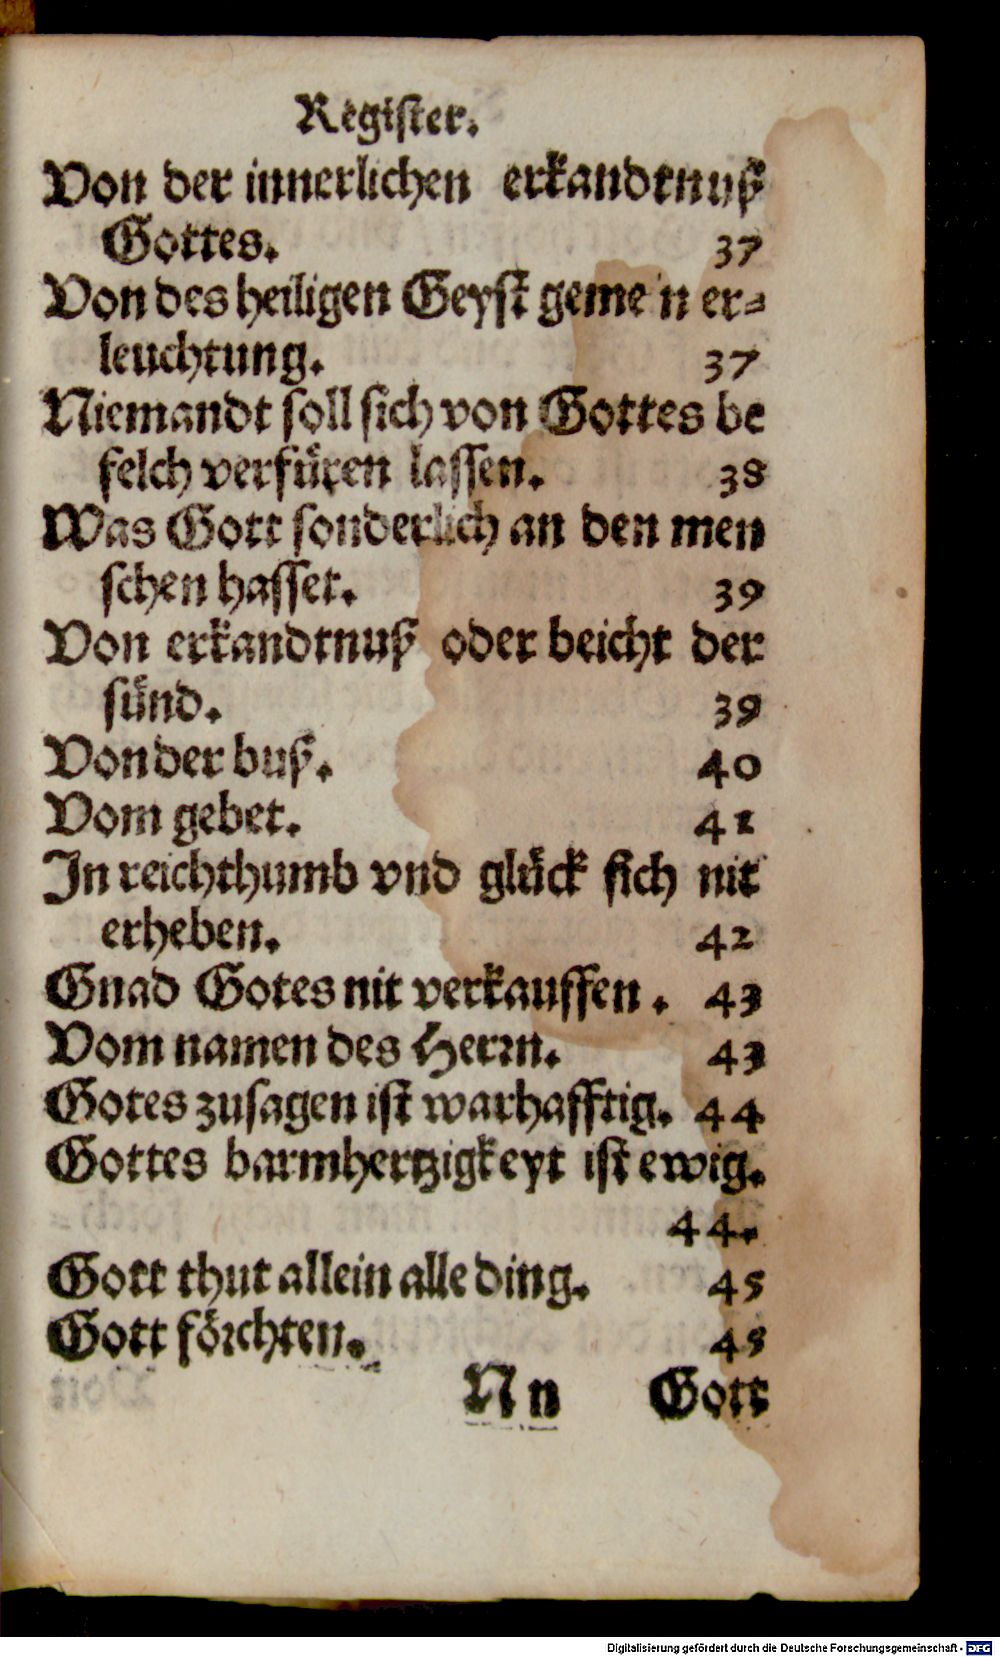 Register.
Von der innerlichen erkandtnuß
Gottes. 37
Von des heiligen Geyst geme in er=
leuchtung. 37
Niemandt soll sich von Gottes be
felch verfüren lassen. 38
Was Gott sonderlich an den men
schen hasset. 39
Von erkandtnuß oder beicht der
sünd. 39
Von der buß. 40
Vom gebet. 41
In reichthumb vnd glück sich nit
erheben. 42
Gnad Gotes nit verkauffen. 43
Vom namen des Herrn. 43
Gotes zusagen ist warhafftig. 44
Gottes barmhertzigkeyt ist ewig.
44.
Gott thut allein alle ding. 45
Gott förchten. 45
N n Gott
Digitalisierung gefördert durch die Deutsche Forschungsgemeinschaft - DFG